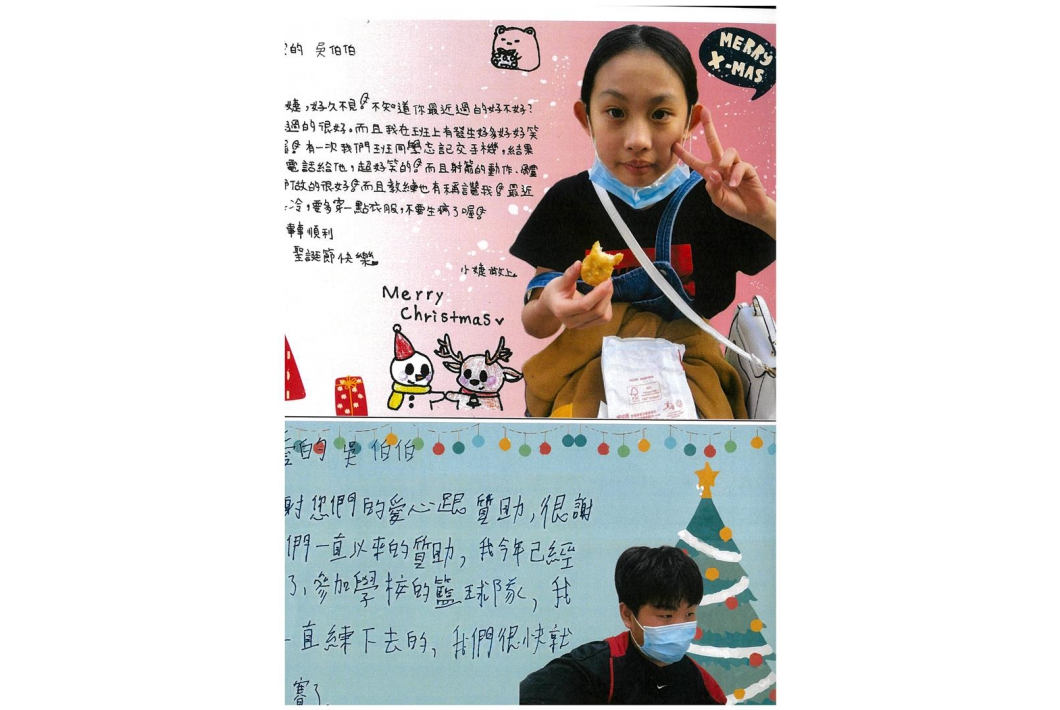 的 吳伯伯
MERRY
X-MAS
婕，好久不見！不知道你最近過的好不好？
過的很好。而且我在班上有發生好多好好笑
有一次我們班同學忘記交手機，結果
電話給他，超好笑的！而且射箭的動作、
做的很好！而且教練也有稱讚我！最近
冷，要多穿一點衣服，不要生病了喔！
事順利
聖誕節快樂。
小婕 敬上。
Merry
Christmas
愛的 吳 伯伯
謝您們的愛心跟贊助，很謝
們一直以來的贊助，我今年已經
了，參加學校的籃球隊，我
一直練下去的，我們很快就
賽了